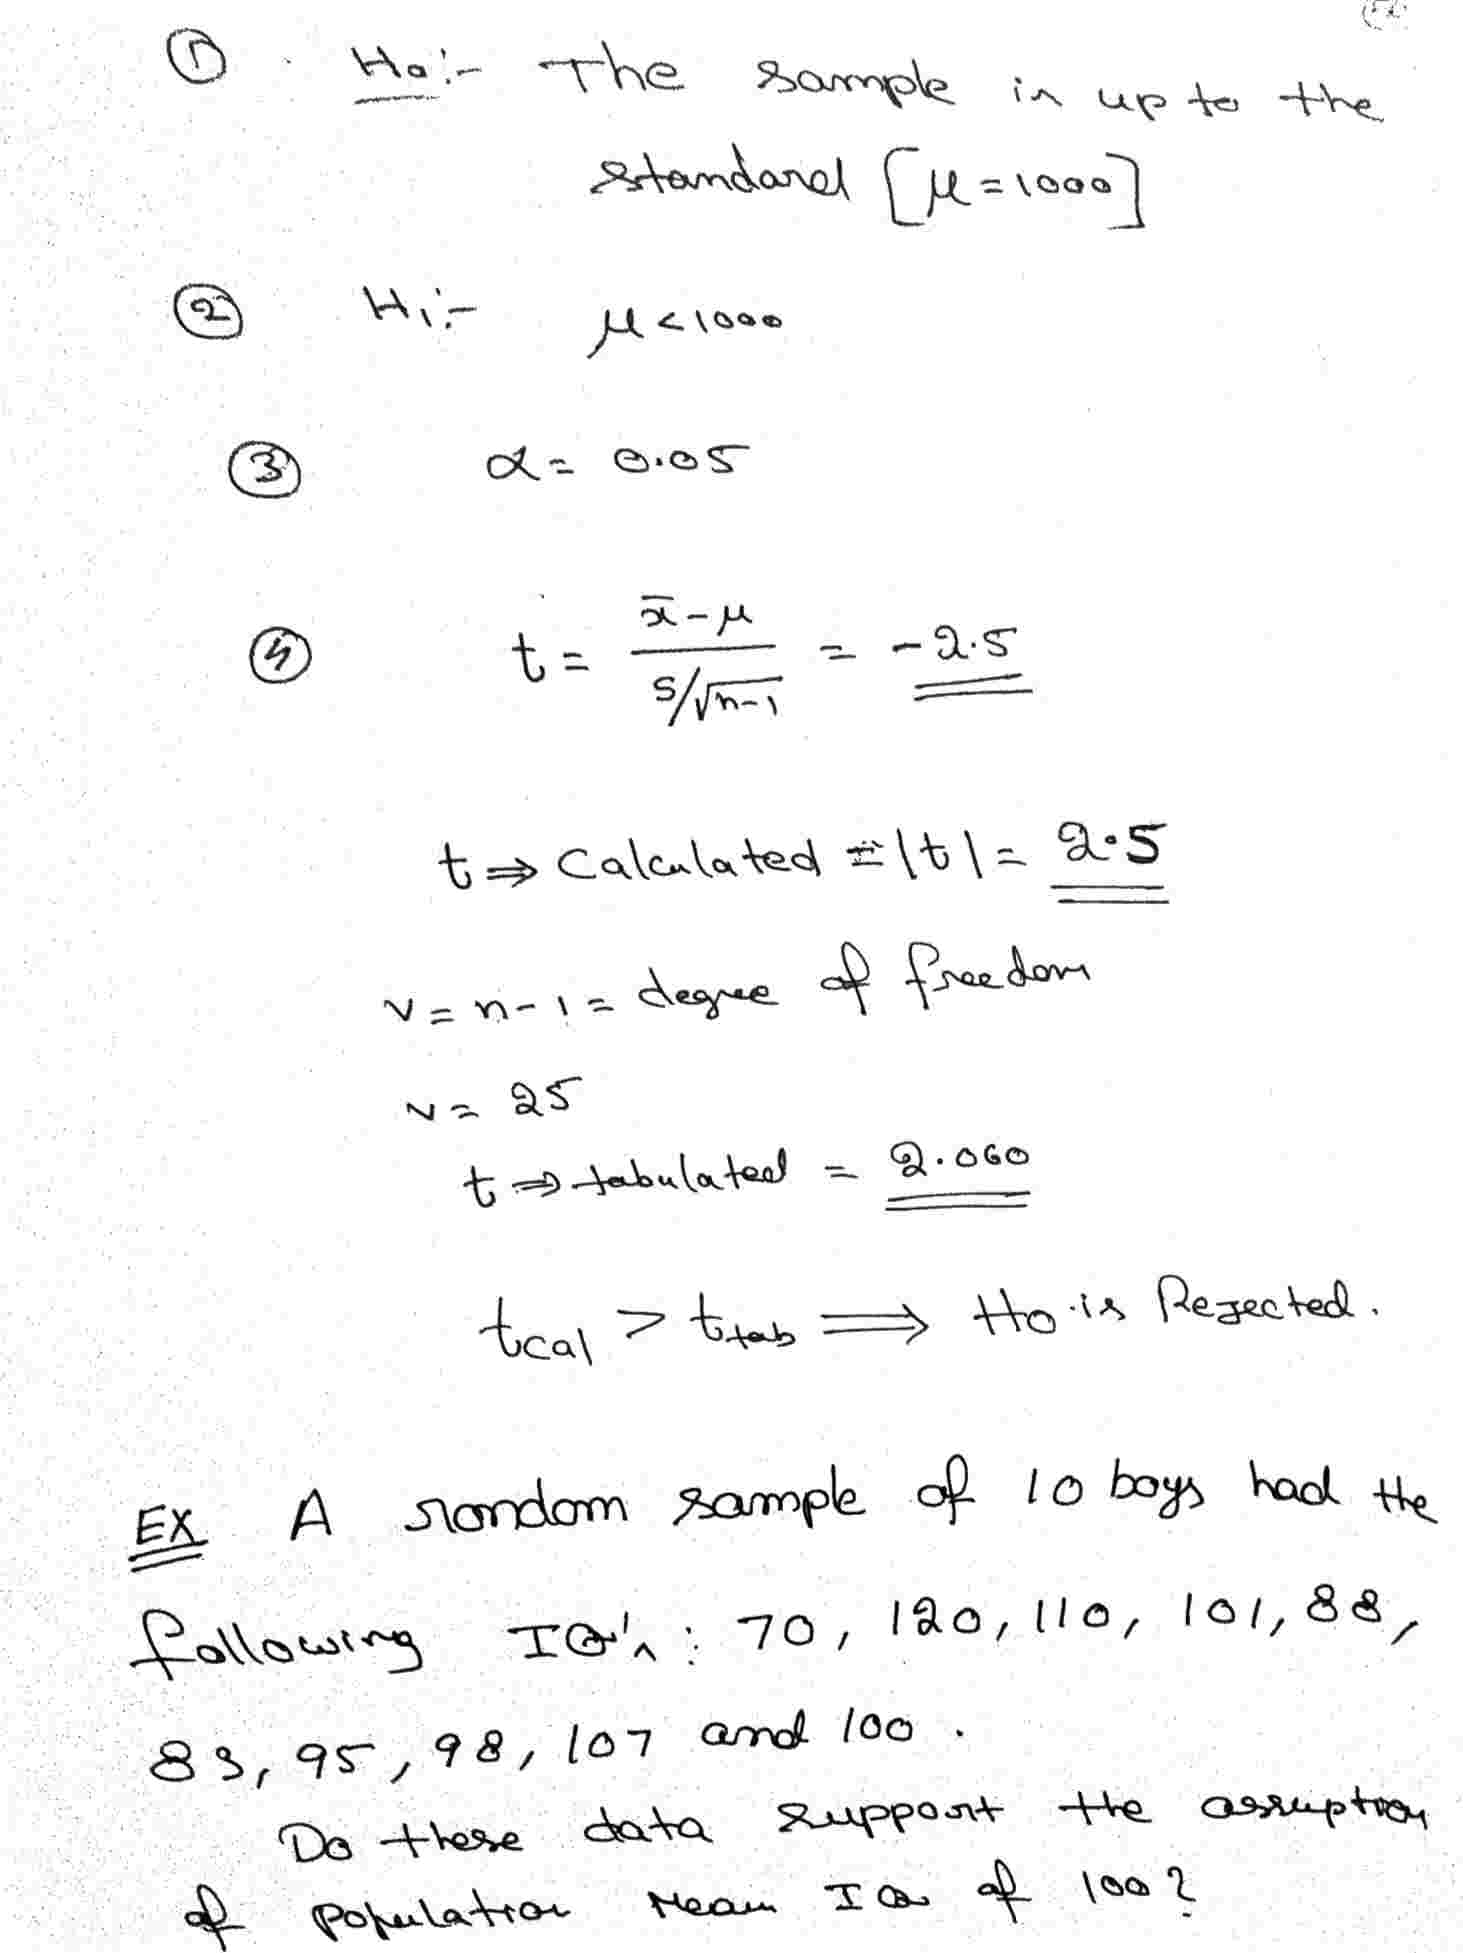 ① H₀:- The sample is up to the
standard [μ = 1000]
② H₁:- μ < 1000
③ α = 0.05
④ t = (x̄ - μ) / (s/√n-1) = -2.5
t ⇒ Calculated = |t| = 2.5
v = n - 1 = degree of freedom
v = 25
t ⇒ tabulated = 2.060
tcal > ttab ⟹ H₀ is Rejected.
EX A random sample of 10 boys had the
following IQ's : 70, 120, 110, 101, 88,
83, 95, 98, 107 and 100.
Do these data support the assuption
of population mean IQ of 100?